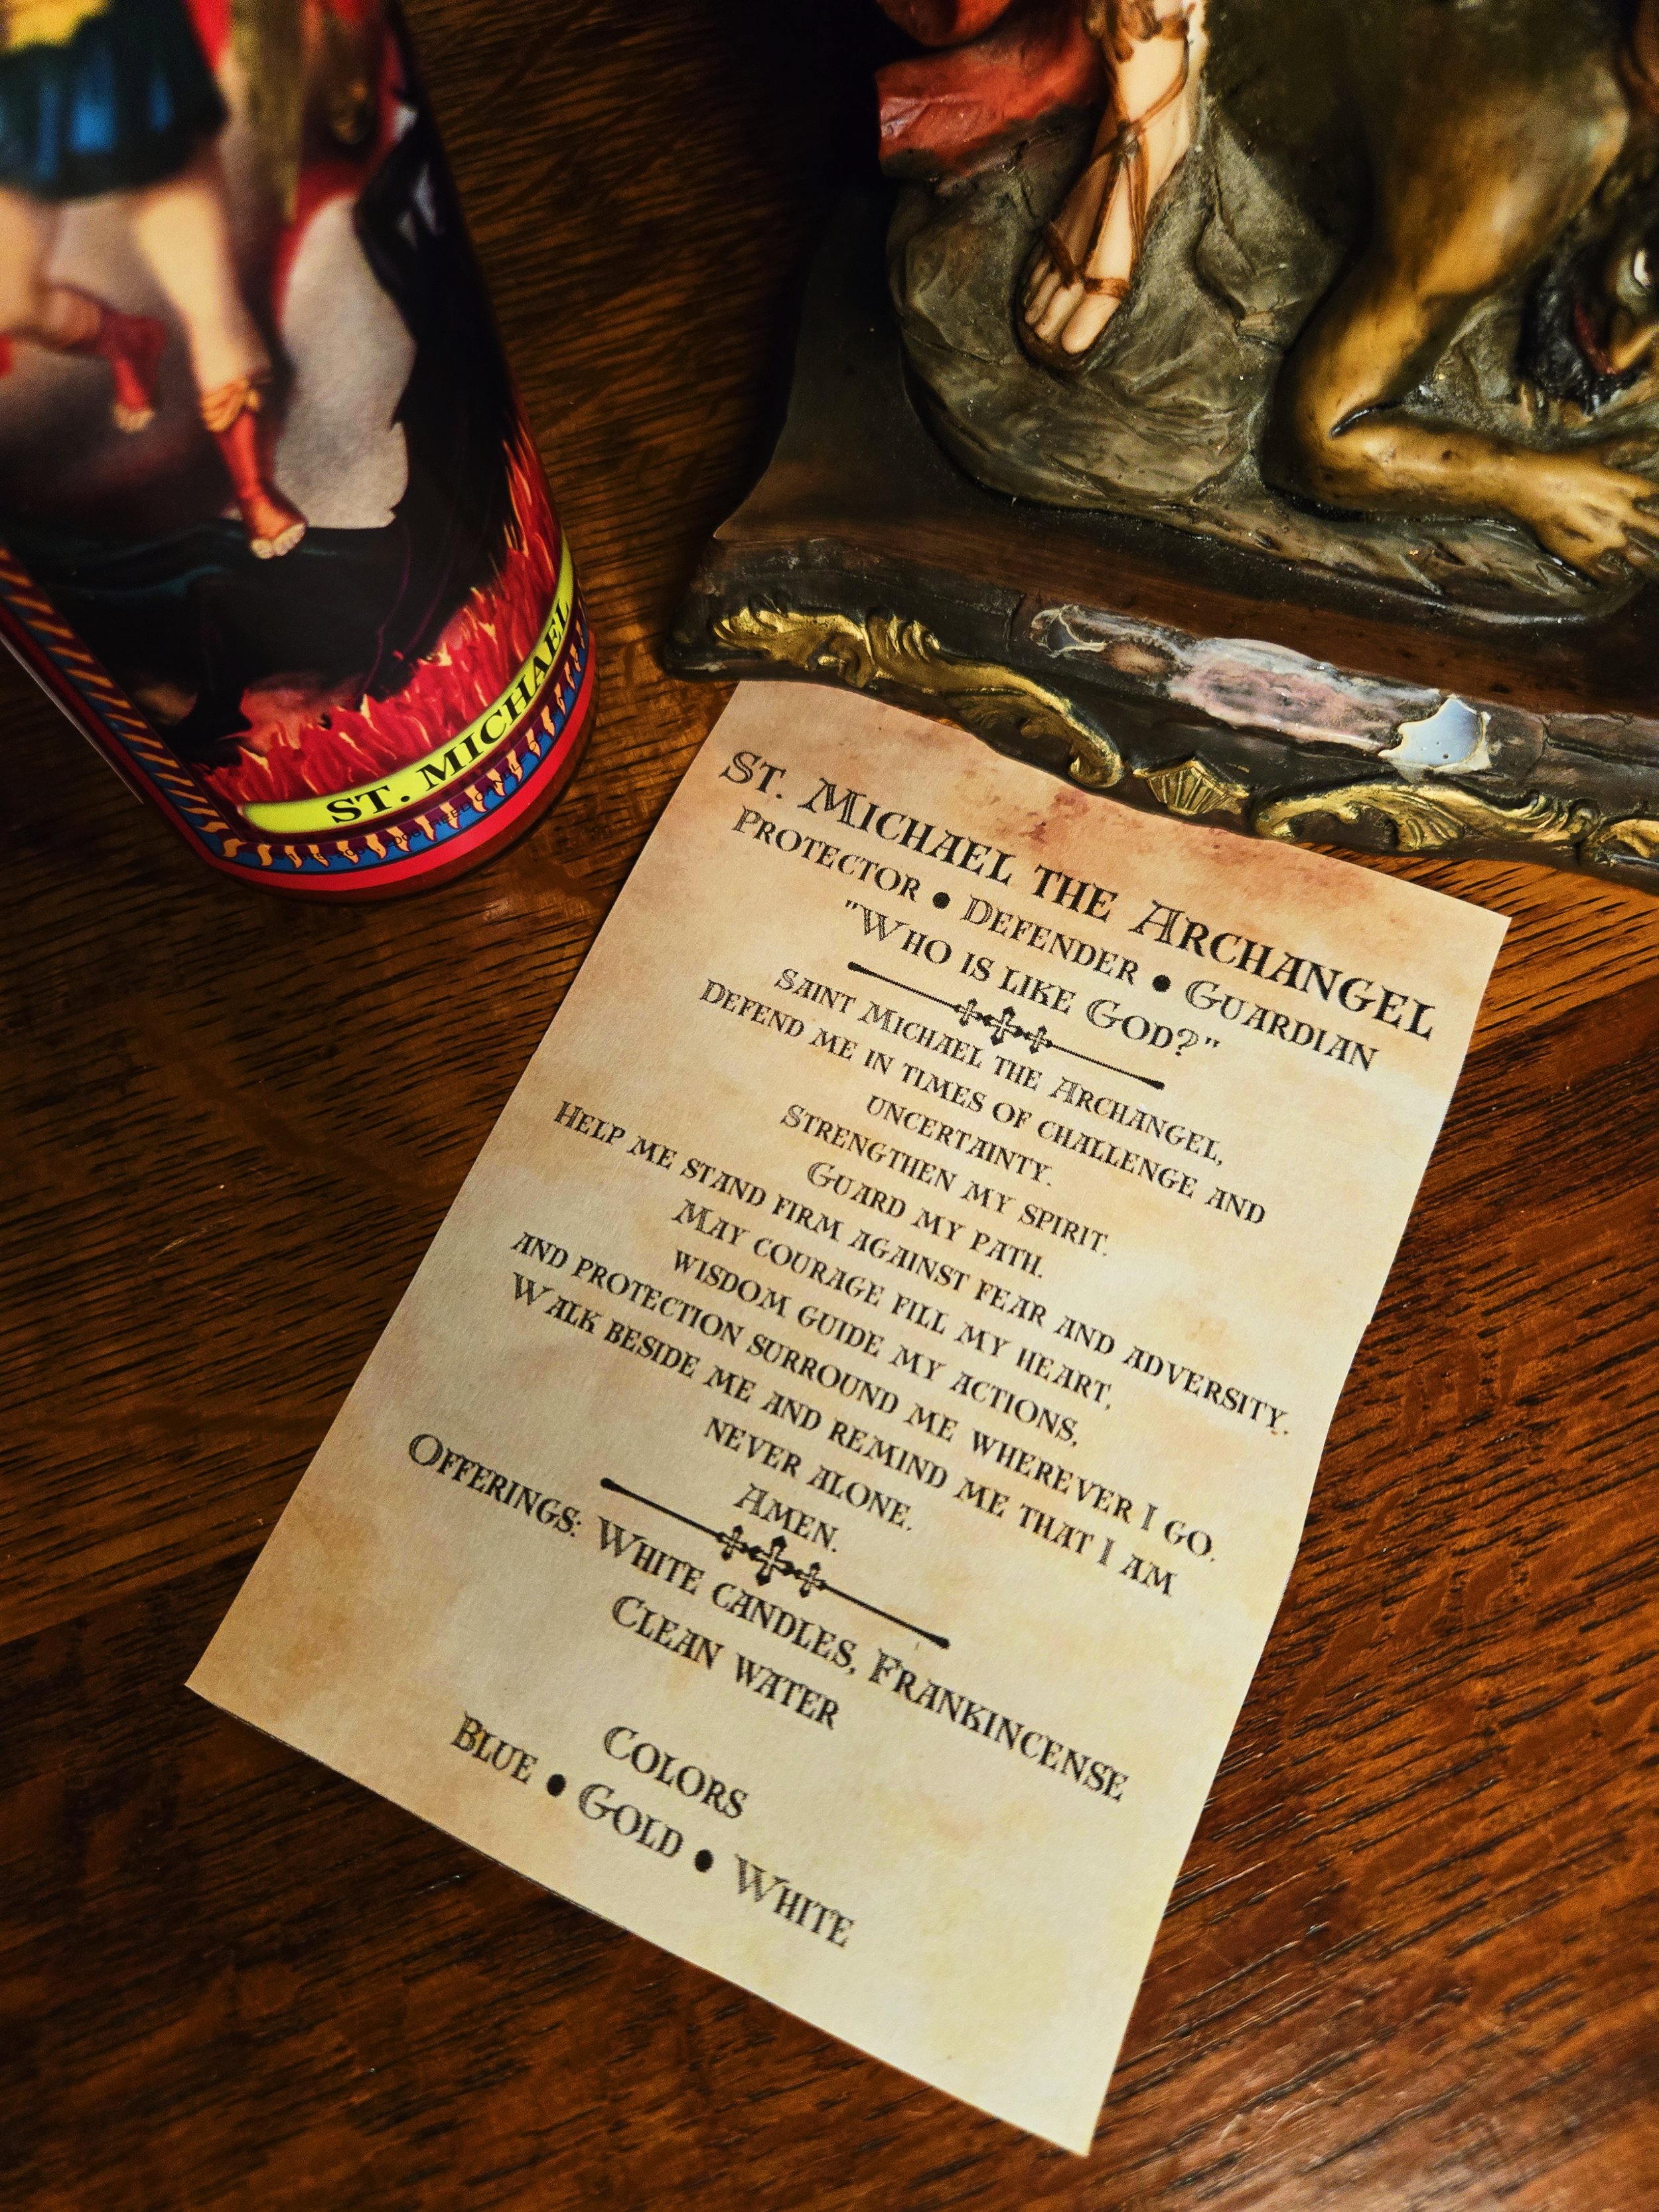 ST. MICHAEL
ST. MICHAEL THE ARCHANGEL
PROTECTOR • DEFENDER • GUARDIAN
"WHO IS LIKE GOD?"
SAINT MICHAEL THE ARCHANGEL,
DEFEND ME IN TIMES OF CHALLENGE AND
UNCERTAINTY.
STRENGTHEN MY SPIRIT.
GUARD MY PATH.
HELP ME STAND FIRM AGAINST FEAR AND ADVERSITY.
MAY COURAGE FILL MY HEART,
WISDOM GUIDE MY ACTIONS,
AND PROTECTION SURROUND ME WHEREVER I GO.
WALK BESIDE ME AND REMIND ME THAT I AM
NEVER ALONE.
AMEN.
OFFERINGS: WHITE CANDLES, FRANKINCENSE
CLEAN WATER
COLORS
BLUE • GOLD • WHITE